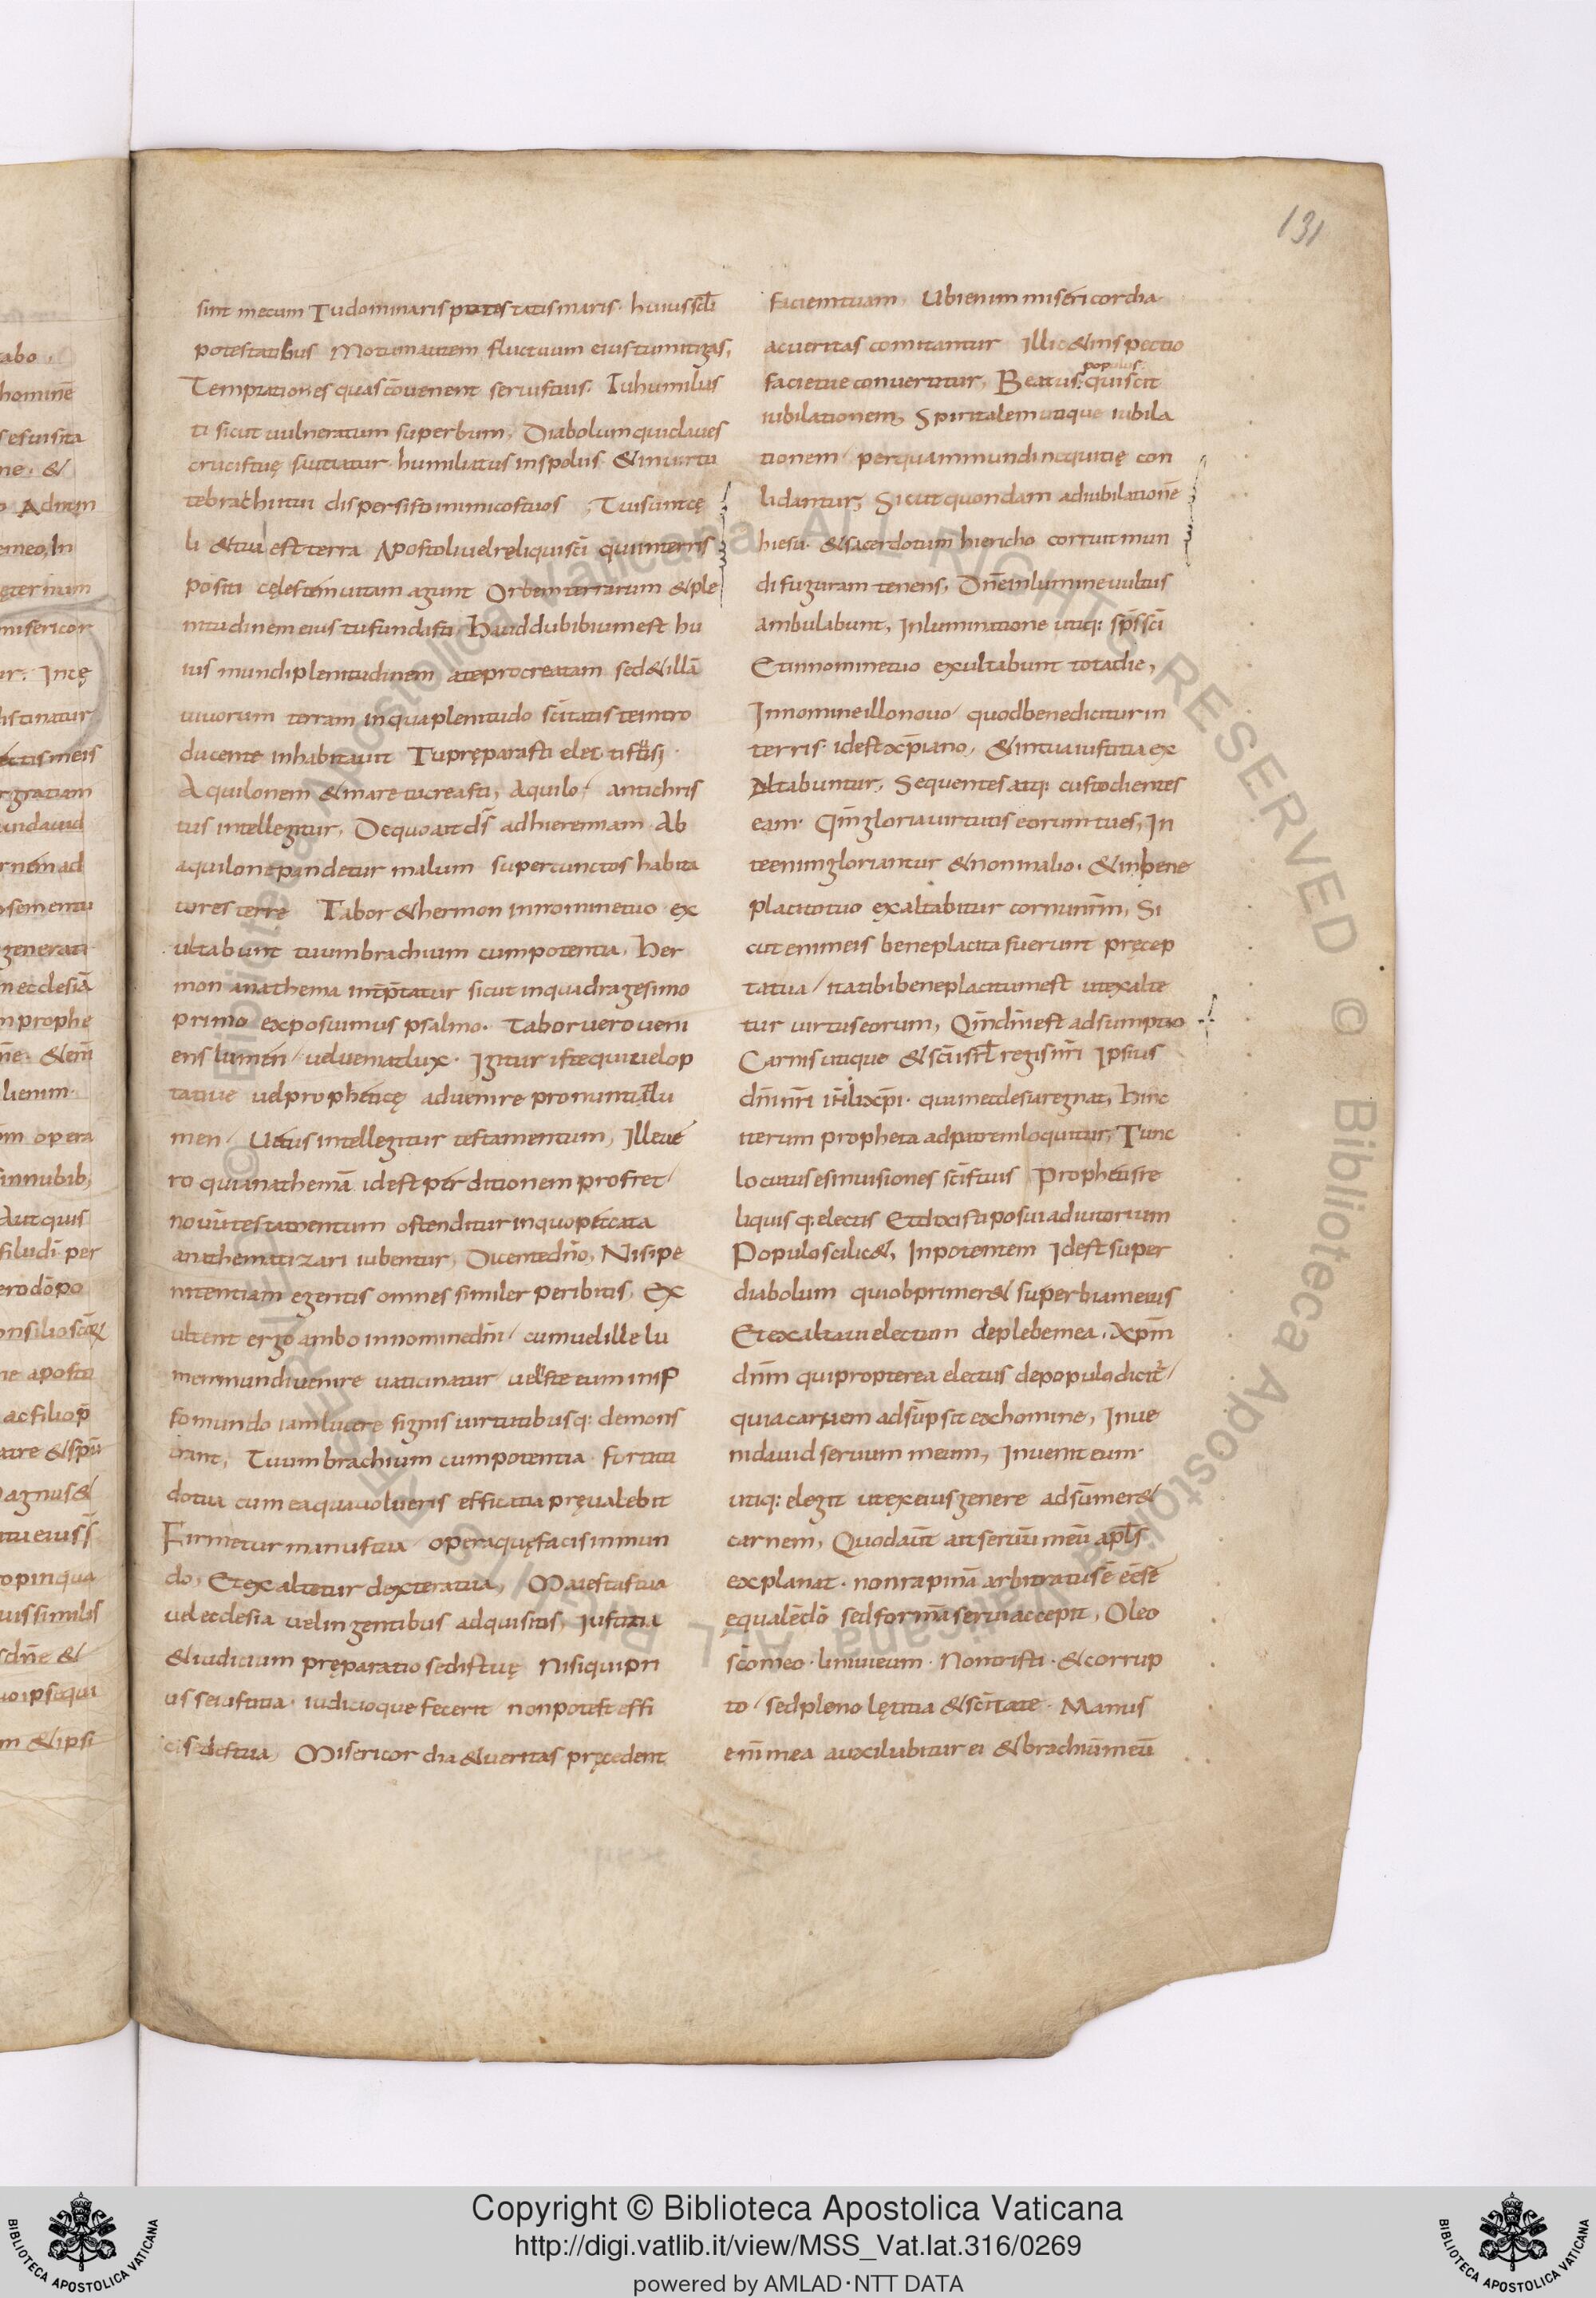 131
sint mecum Tu dominaris potestatis maris. huius scłi
potestatibus Motum autem fluctuum eius tu mitigas,
Temptationes quas cōvenent servis tuis. Tu humilias
ti sicut vulneratum superbum, Diabolum qui claves
crucis tuę sutiatur. humiliatus in spolus & in virtu
te brachii tui dispersisti inimicos tuos, Tui sunt cę
li & tua est terra Apostoli vel reliqui scī qui in terris
positi cęlestem vitam agunt Orbem terrarum & ple
nitudinem eius tu fundasti Haud dubibium est hu
ius mundi plenitudinem a te procreatam sed & illā
vivorum terram in qua plenitudo scītatis te intro
ducente inhabitavit Tu pręparasti
Aquilonem & mare tu creasti, Aquilo antichris
tus intellegitur, De quo ait dš ad hieremiam. Ab
aquilone pandetur malum super cunctos habita
tores terre Tabor & hermon in nomine tuo ex
ultabunt tuum brachium cum potentia. Her
mon anathema intp̄tatur sicut in quadragesimo
primo exposuimus psalmo. Tabor vero veni
ens lumen vel veniat lux. Igitur iste qui vel op
tative vel prophetice advenire pronuntiat lu
men Vetus intellegitur testamentum, Ille ve
ro qui anathemā id est perditionem profret
novū testamentum ostenditur in quo peccata
anathematizari iubentur, Dicente dn̄o, Nisi pe
nitentiam egeritis omnes similer peribitis. Ex
ultent ergo ambo in nomine dn̄i cum vel ille lu
men mundi venire vaticinatur vel iste eum in ip
so mundo iam lucere signis virtutibusq: demons
trant, Tuum brachium cum potentia. fortitu
do tua cum ea qua volueris efficatia pręvalebit
Firmetur manus tua opera quę facis in mun
do, Et exaltetur dextera tua, Maiestas tua
vel ecclesia vel in gentibus adquisitis, Iustitia
& iudicium pręparatio sedis tuę Nisi qui pri
us se iustitia. iudicioque fecerit non potest effi
ci sedes tua, Misericordia & veritas pręcedent
faciem tuam. Ubi enim misericordia
ac veritas comitantur illic & inspectio
popolus
facie tue convertitur, Beatus qui scit
iubilationem, Spiritalem utique iubila
tionem per quam mundi nequitię con
lidantur, Sicut quondam ad iubilationē
hiesu. & sacerdotum hiericho corruit mun
di fuguram tenens, Dn̄e in lumine vultus
ambulabunt, Inluminatione utiq: sp̄s scī
Et in nomine tuo exultabunt tota die,
In nomine illo novo quod benedicitur in
terris. id est xp̄iano, & in tua iustitia ex
altabuntur, Sequentes atq: custodientes
eam. Qm̄ gloria virtutis eorum tu es, In
te enim gloriantur & non in alio. & in bene
placito tuo exaltabitur cornu nr̄m, Si
cut enim eis beneplacita fuerunt pręcep
ta tua ita tibi beneplacitum est ut exalte
tur virtus eorum, Qm̄ dn̄i est adsumptio
Carnis utique & scī isrł regis nr̄i Ipsius
dn̄i nr̄i ih̄u xp̄i. qui in ecclesia regnat, Hinc
iterum propheta ad patrem loquitur, Tunc
locutus es in visiones scīs tuis Prophetis re
liquisq: electis Et dixisti posui adiutorium
Populo scilic&, In potentem Id est super
diabolum qui obprimer& superbiam eius
Et exaltavi electum de plebe mea, Xp̄m
dn̄m qui propterea electus de populo dicit̄
quia carnem adsūpsit ex homine, Inve
ni david servum meum, Invenit eum
utiq: elegit ut ex eius genere adsūmer&
carnem, Quod aūt ait servū meū apl̄s
explanat. non rapinā arbitratus ē ēsē
equale dō sed formā servi accepit, Oleo
scō meo. linivi eum. Non tristi. & corrup
to sed pleno lętitia & scītate. Manus
enī mea auxiliabitur ei & brachiū meū
Copyright © Biblioteca Apostolica Vaticana
http://digi.vatlib.it/view/MSS_Vat.lat.316/0269
powered by AMLAD·NTT DATA